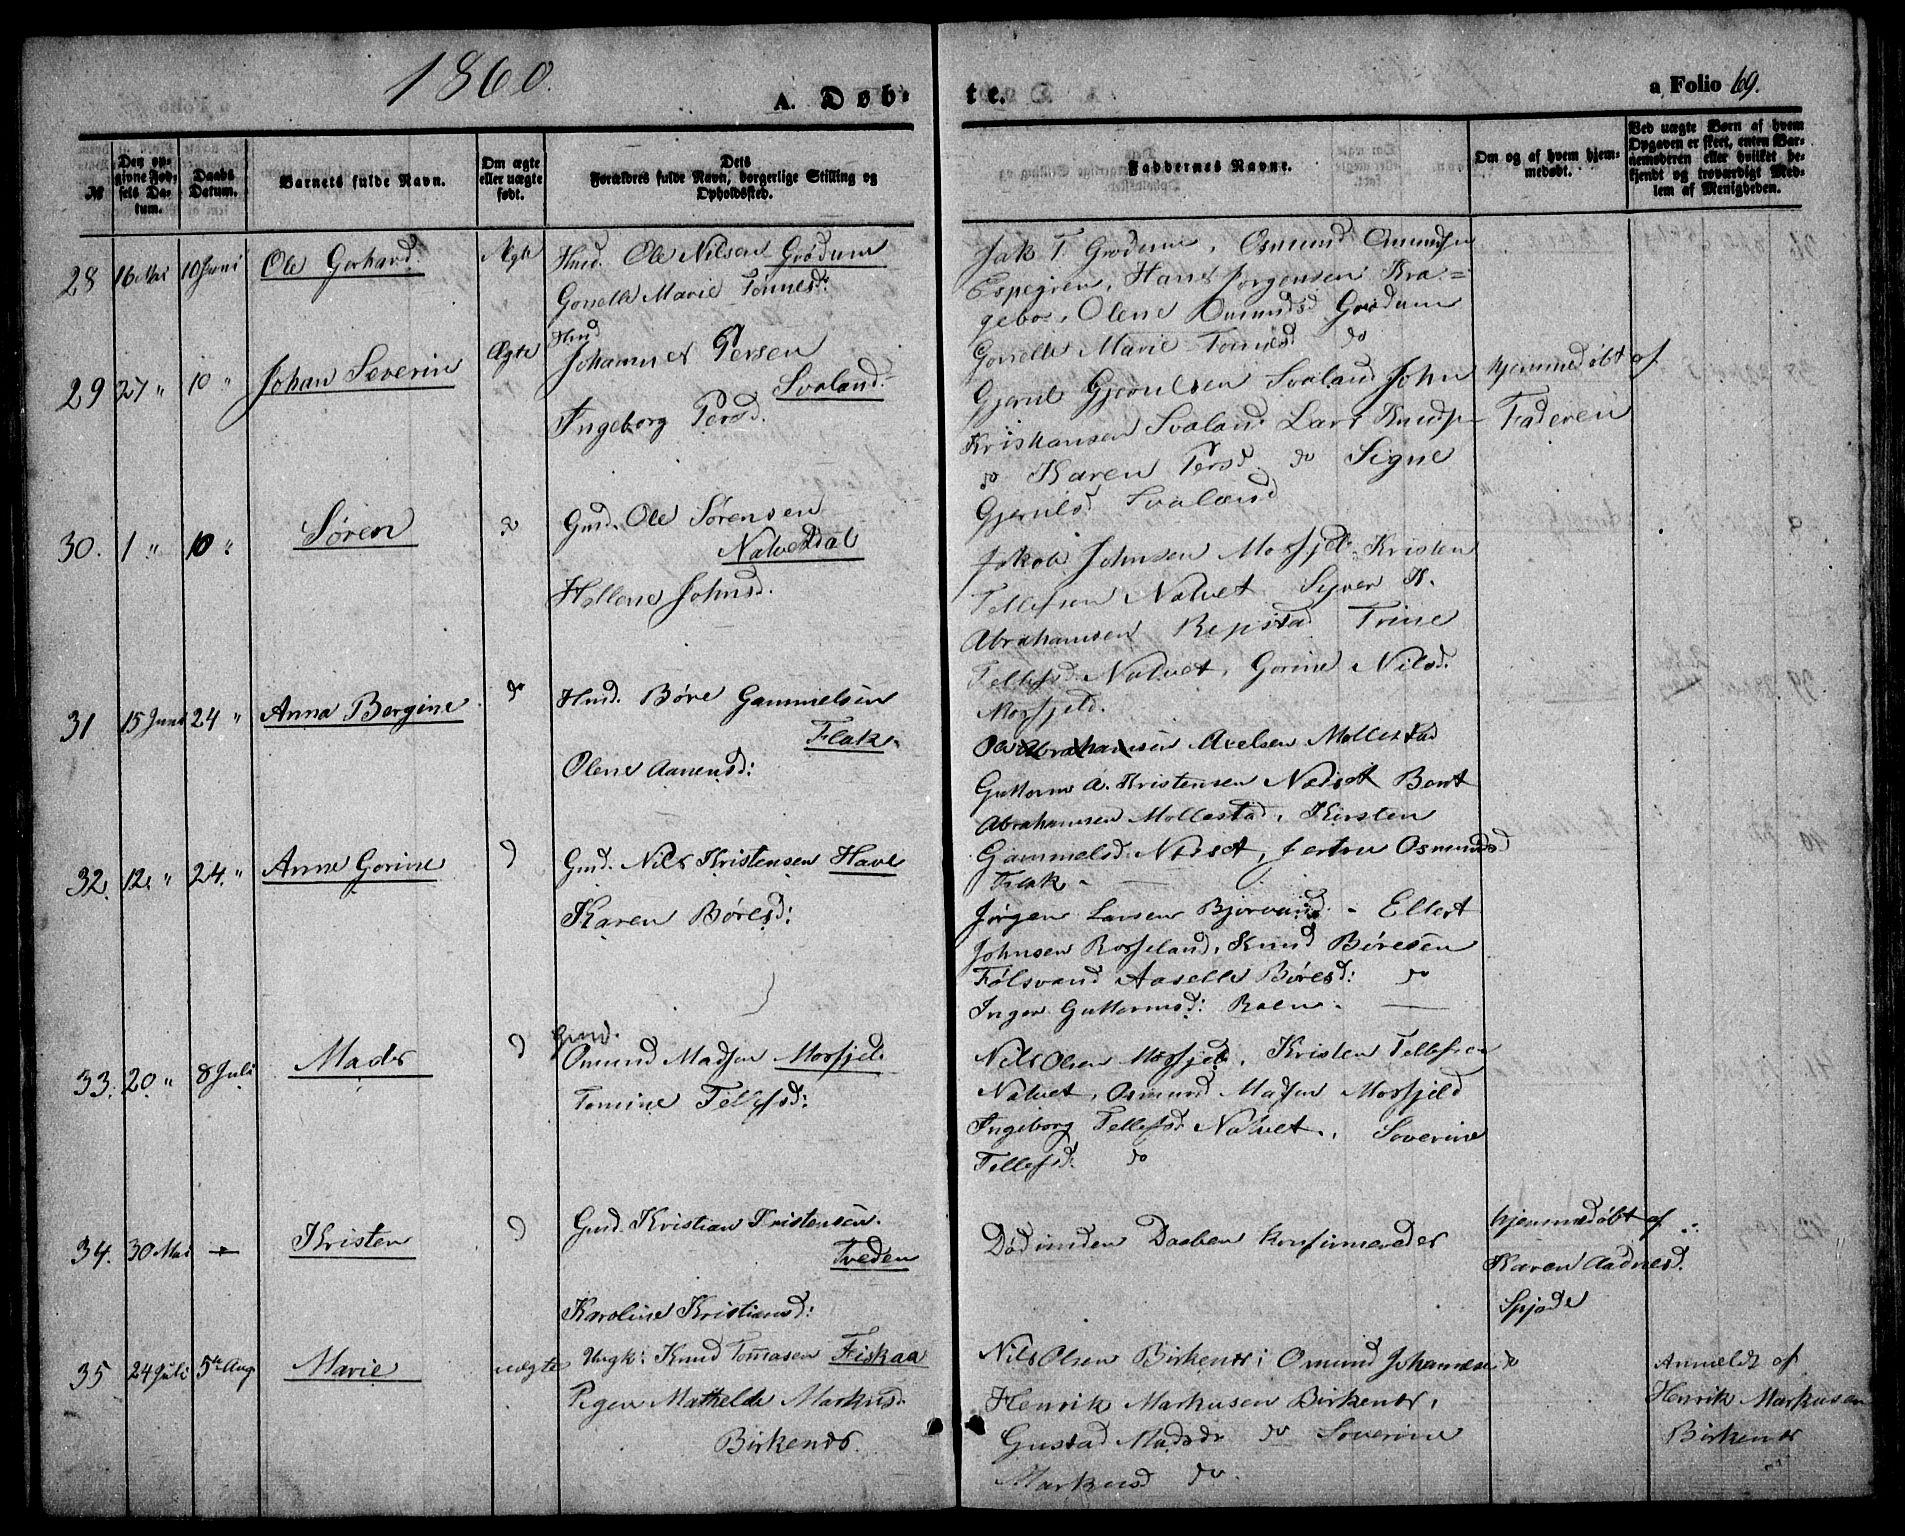 1860.
A. Døb-
te.
a Folio 69.
№
Den opgivne Fødsels Datum.
Daabs Datum.
Barnets fulde Navn.
Om ægte eller uægte født.
Dets
Forældres fulde Navn, borgerlige Stilling og
Opholdssted.
Faddernes Navne.
Om og af hvem hjemmedøbt.
Ved uægte Børn af hvem
Opgaven er skeet, enten Barnemoderen
eller hvilket bekjendt
og troværdigt Medlem
af Menigheden.
28 16 Mai 10 Juni Ole Gerhard Ægte Huusd. Ole Nilsen Grødum
Gonelle Marie Tonnesd:
Jak T. Grødum, Osmund Omundsen
Espegren, Hans Jørgensen Kragebo,
Olene Omundsd Grødum
Gonelle Marie Tonnesd do
29 27 " 10 " Johan Severin Ægte Husd
Johannes Persen
Svaland.
Ingeborg Persd.
Gjerul Gjerulsen Svaland John
Kristiansen Svaland Lars Knuds
do Karen Persd do Signe
Gjerulsd Svaland
hjemmedøbt af
Faderen
30. 1 " 10 " Søren do Gmd. Ole Sørensen
Natvedal
Hellene Johnsd.
Jakob Johnsen Mosfjeld Kristen
Tellefsen Natvet Syver K.
Abrahamsen Repstad Trine
Tellefsd Natvet, Gorine Nilsd.
Mosfjeld.
31 15 Juni 24 " Anna Bergine do Husd. Børe Gammelsen
Flak.
Olene Aanensd:
Ole Abrahamsen Axelsen Mollestad
Guttorm A. Kristensen Nødset Bent
Abrahamsen Mollestad, Kirsten
Gjammelsd. Nødset, Jertru Osmundsd
Flak
32. 12. " 24. " Anne Gorine do Gmd. Nils Kristensen Have
Karen Børesd:
Jørgen Larsen Bjorvand - Ellert
Johnsen Rosseland, Knud Børesen
Følsvand Aaselle Børesd: do
Inger Guttormsd: Roen
33. 20. " 8 Juli Mads do Gmd.
Omund Madsen Mosfjeld
Tomine Tellefsd:
Nils Olsen Mosfjeld, Kristen Tellefsen
Natvet, Osmund Madsen Mosfjeld
Ingeborg Tellefsd Natvet, Severine
Tellefsd: do
34. 30 Mai Kristen do Gmd. Kristian Kristensen.
Tveden
Karoline Kristiansd:
Død inden Daaben konfirmeredes
hjemmedøbt af
Karen Aadnesd.
Spjode
35 24 Juli 5te Aug Marie uægte Ungk: Knud Tomasen Fiskaa
Pigen Mathelde Markusd.
Birkenes.
Nils Olsen Birkenes; Omund Johannesen do
Henrik Markusen Birkenes,
Gustad Madsd do Severine
Markusd do.
Anmeldt af
Henrik Markusen
Birkenes